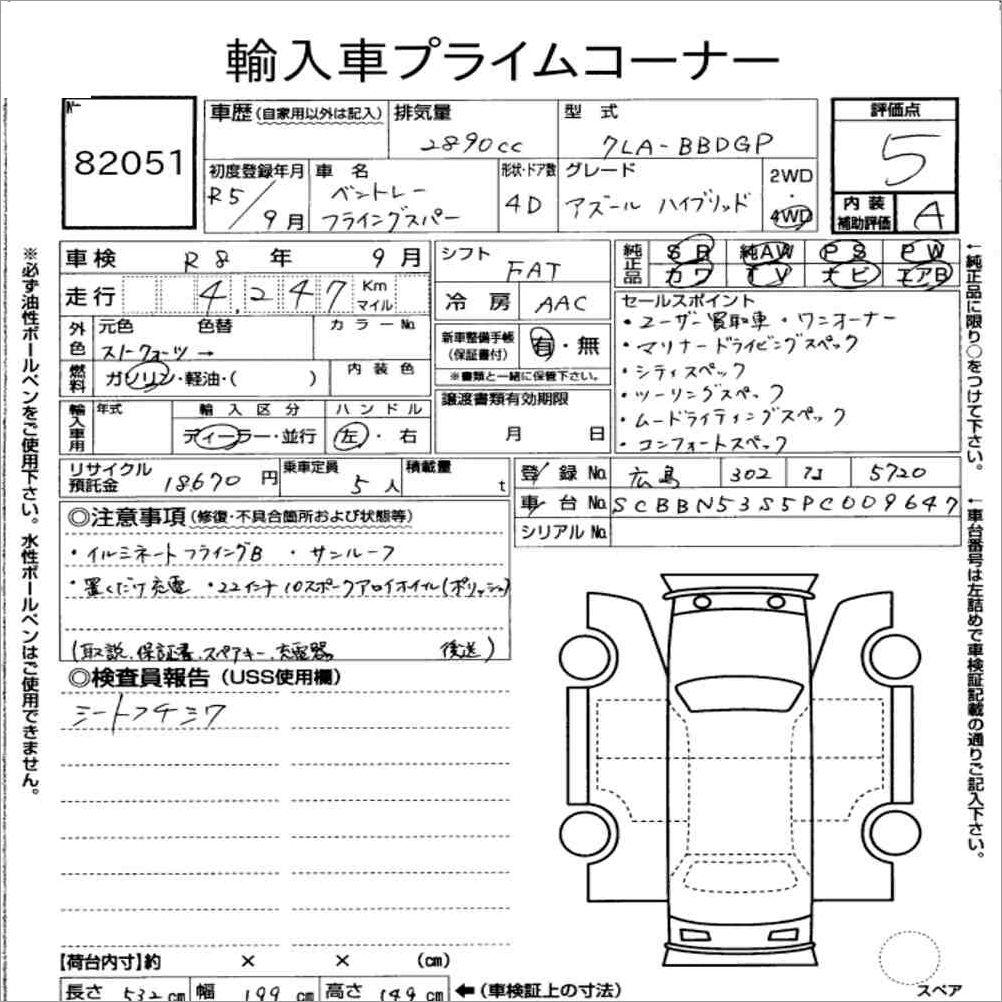 輸入車プライムコーナー
№
82051
車歴 (自家用以外は記入)
排気量
2890cc
型式
7LA-BBDGP
評価点
5
初度登録年月
R5/9月
車名
ベントレー
フライングスパー
形状・ドア数
4D
グレード
アズール ハイブリッド
2WD
・
4WD
内装
補助評価
A
※必ず油性ボールペンをご使用下さい。水性ボールペンはご使用できません。
車検 R8年 9月
走行 4,247 Km マイル
外色
元色 色替 カラーNo.
燃料
ガソリン・軽油・( )
内装色
輸入車用
年式
輸入区分
ディーラー・並行
ハンドル
左・右
シフト
FAT
冷房 AAC
新車整備手帳
(保証書付)
有・無
※書類と一緒に保管下さい。
譲渡書類有効期限
月 日
純正品
SR 純AW PS PW
カワ TV ナビ エアB
セールスポイント
・ユーザー買取車 ・ワンオーナー
・マリナードライビングスペック
・シティスペック
・ツーリングスペック
・ムードライティングスペック
・コンフォートスペック
←純正品に限り○をつけて下さい。
リサイクル
預託金
18670円
乗車定員
5人
積載量
t
登録No. 広島 302 5720
車台No. SCBBN53S5PC009647
シリアルNo.
←車台番号は左詰めで車検証記載の通りご記入下さい。
◎注意事項 (修復・不具合箇所および状態等)
・イルミネートフライングB ・サンルーフ
・置くだけ充電 ・22インチ10スポークアロイホイル(ポリッシュ)
(取説、保証書、スペアキー、充電器 後送)
◎検査員報告 (USS使用欄)
シートスチシワ
【荷台内寸】約 × × (cm)
長さ 532cm 幅 199cm 高さ 149cm ←(車検証上の寸法)
スペア